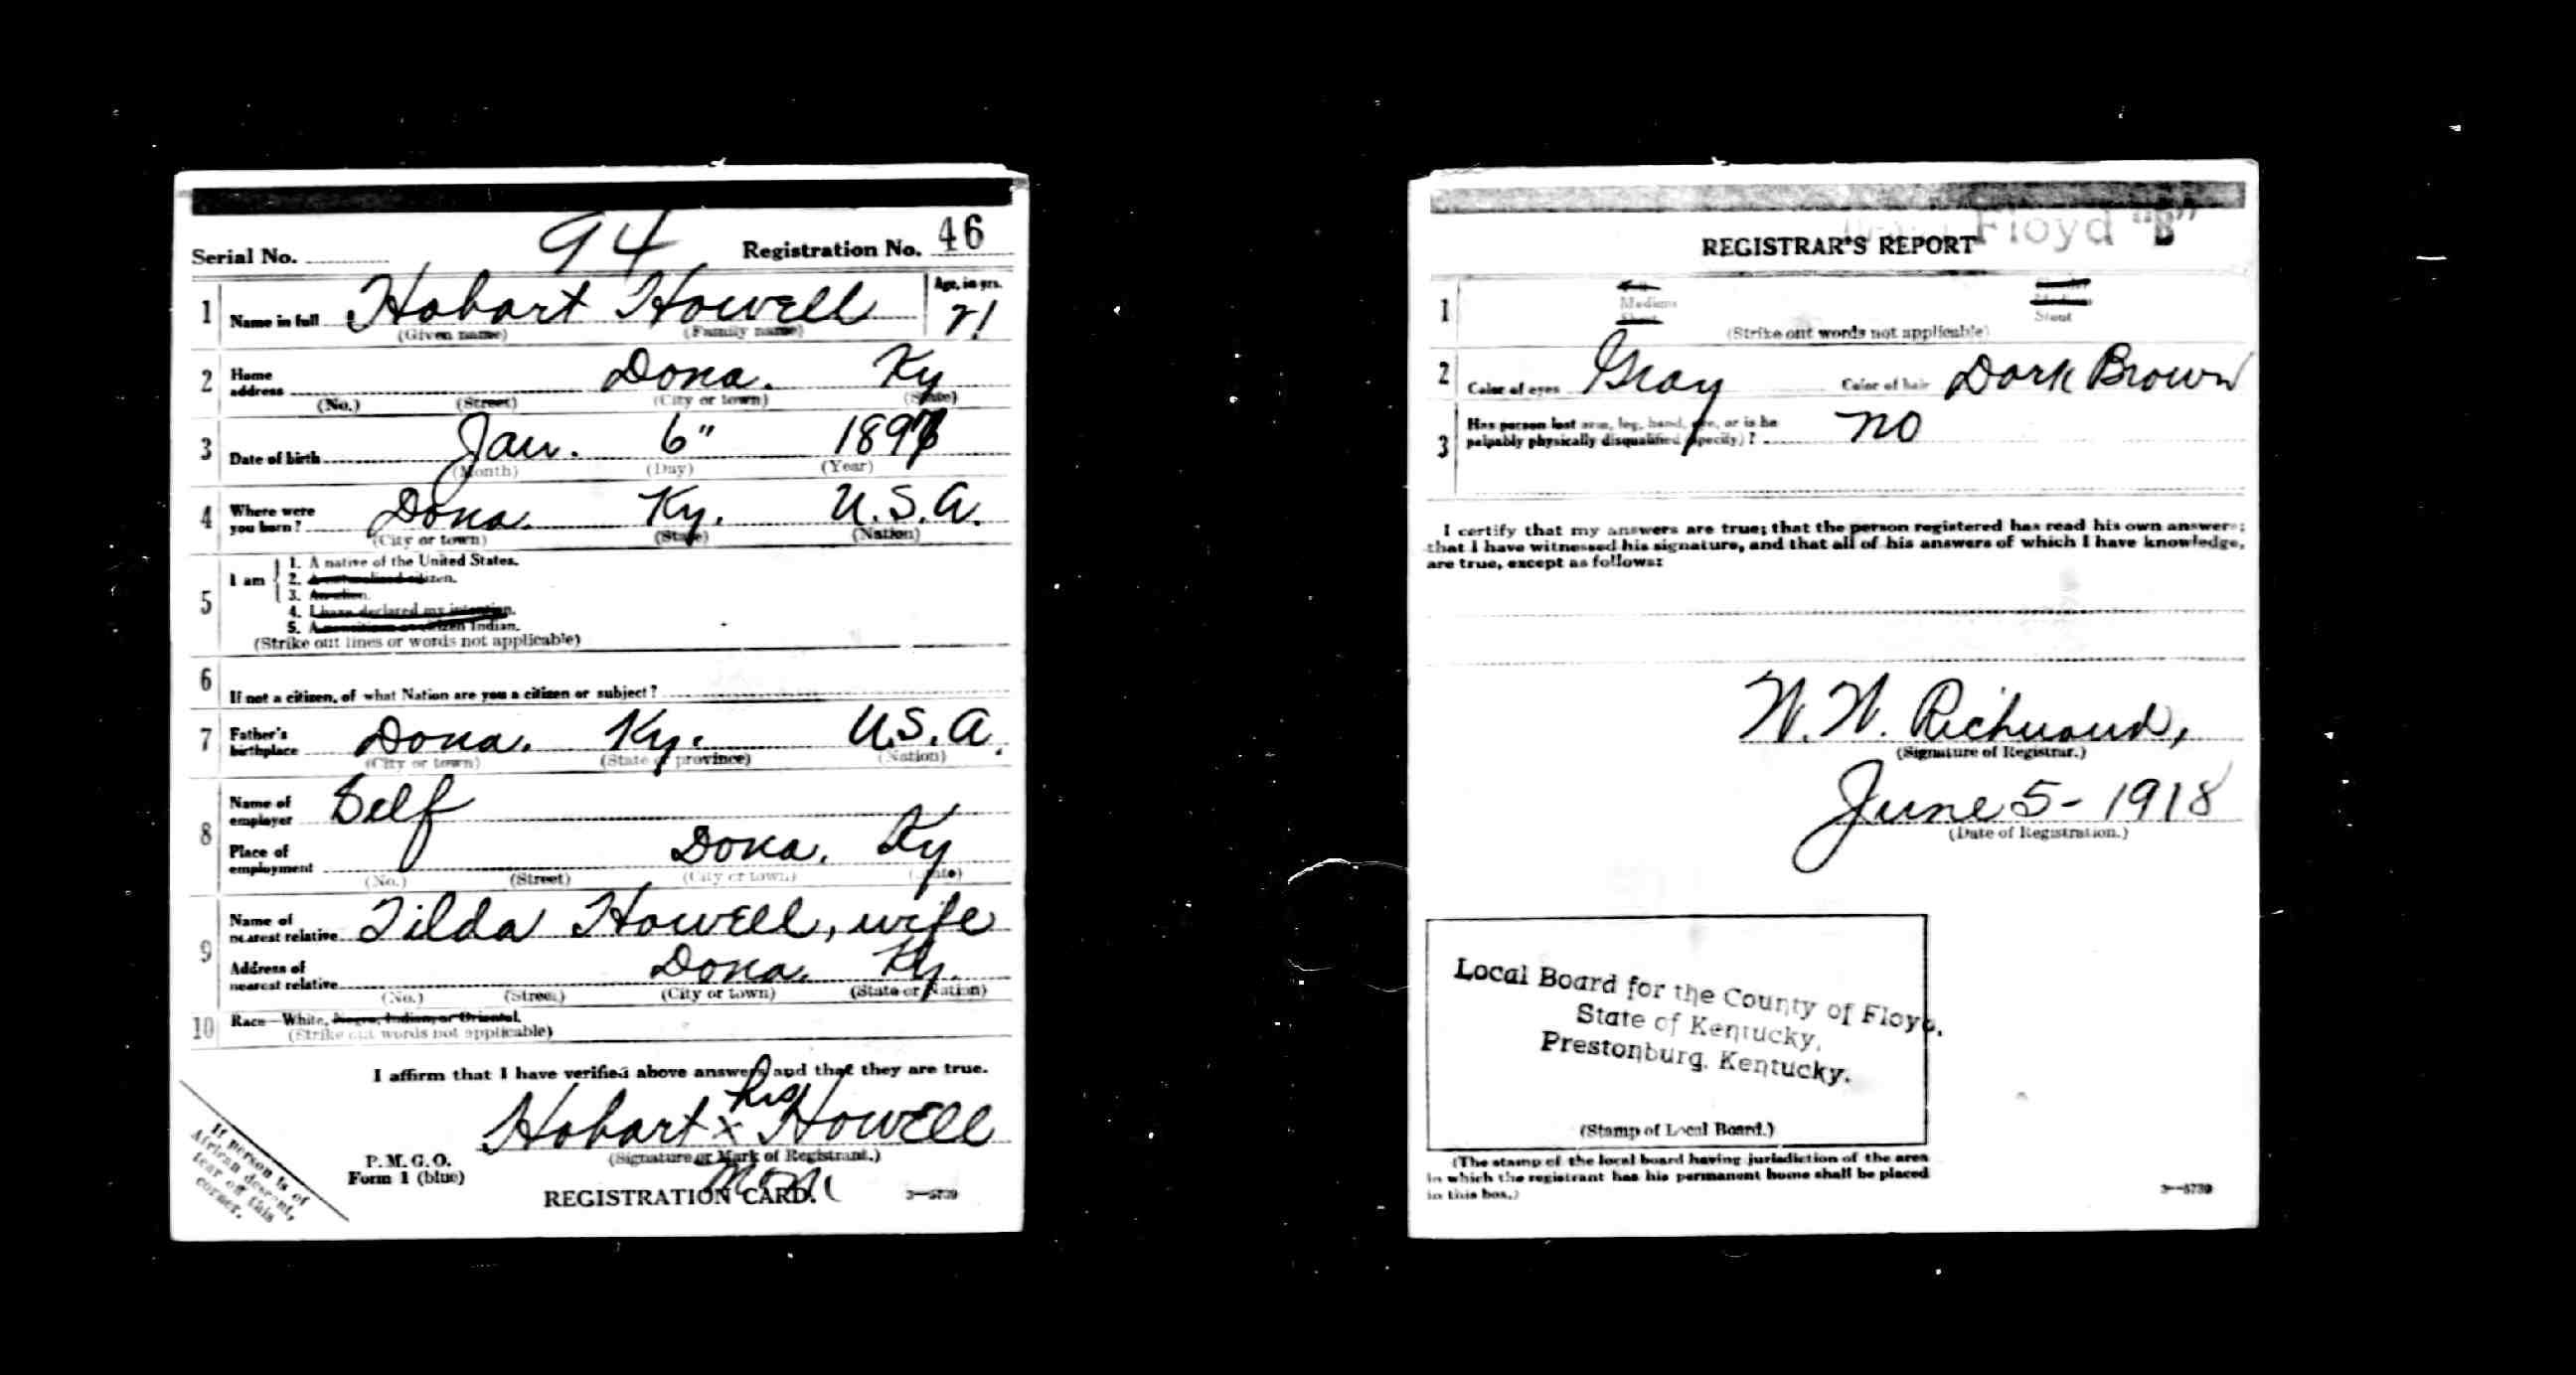 Serial No. 94 Registration No. 46
1 Name in full Hobart Howell Age, in yrs. 21
(Given name) (Family name)
2 Home address Dona. Ky
(No.) (Street) (City or town) (State)
3 Date of birth Jan. 6" 1897
(Month) (Day) (Year)
4 Where were you born? Dona. Ky. U.S.A.
(City or town) (State) (Nation)
5 I am
1. A native of the United States.
2. A naturalized citizen.
3. An alien.
4. I have declared my intention.
5. A noncitizen or citizen Indian.
(Strike out lines or words not applicable)
6 If not a citizen, of what Nation are you a citizen or subject?
7 Father's birthplace Dona. Ky. U.S.A.
(City or town) (State or province) (Nation)
8 Name of employer Self
Place of employment Dona. Ky
(No.) (Street) (City or town) (State)
9 Name of nearest relative Tilda Howell, wife
Address of nearest relative Dona. Ky.
(No.) (Street) (City or town) (State or Nation)
10 Race—White, Negro, Indian, or Oriental.
(Strike out words not applicable)
I affirm that I have verified above answers and that they are true.
his
Hobart x Howell
(Signature or Mark of Registrant.)
mark
P. M. G. O.
Form 1 (blue)
REGISTRATION CARD. 3—5739
If person is of
African descent,
tear off this
corner.
Floyd "B"
REGISTRAR'S REPORT
1 Tall Slender
Medium Medium
Short Stout
(Strike out words not applicable)
2 Color of eyes Gray Color of hair Dark Brown
3 Has person lost arm, leg, hand, eye, or is he
palpably physically disqualified (specify)? no
I certify that my answers are true; that the person registered has read his own answers;
that I have witnessed his signature, and that all of his answers of which I have knowledge,
are true, except as follows:
W. W. Richmond,
(Signature of Registrar.)
June 5- 1918
(Date of Registration.)
Local Board for the County of Floyd,
State of Kentucky,
Prestonburg, Kentucky.
(Stamp of Local Board.)
(The stamp of the local board having jurisdiction of the area
in which the registrant has his permanent home shall be placed
in this box.)
3—5739